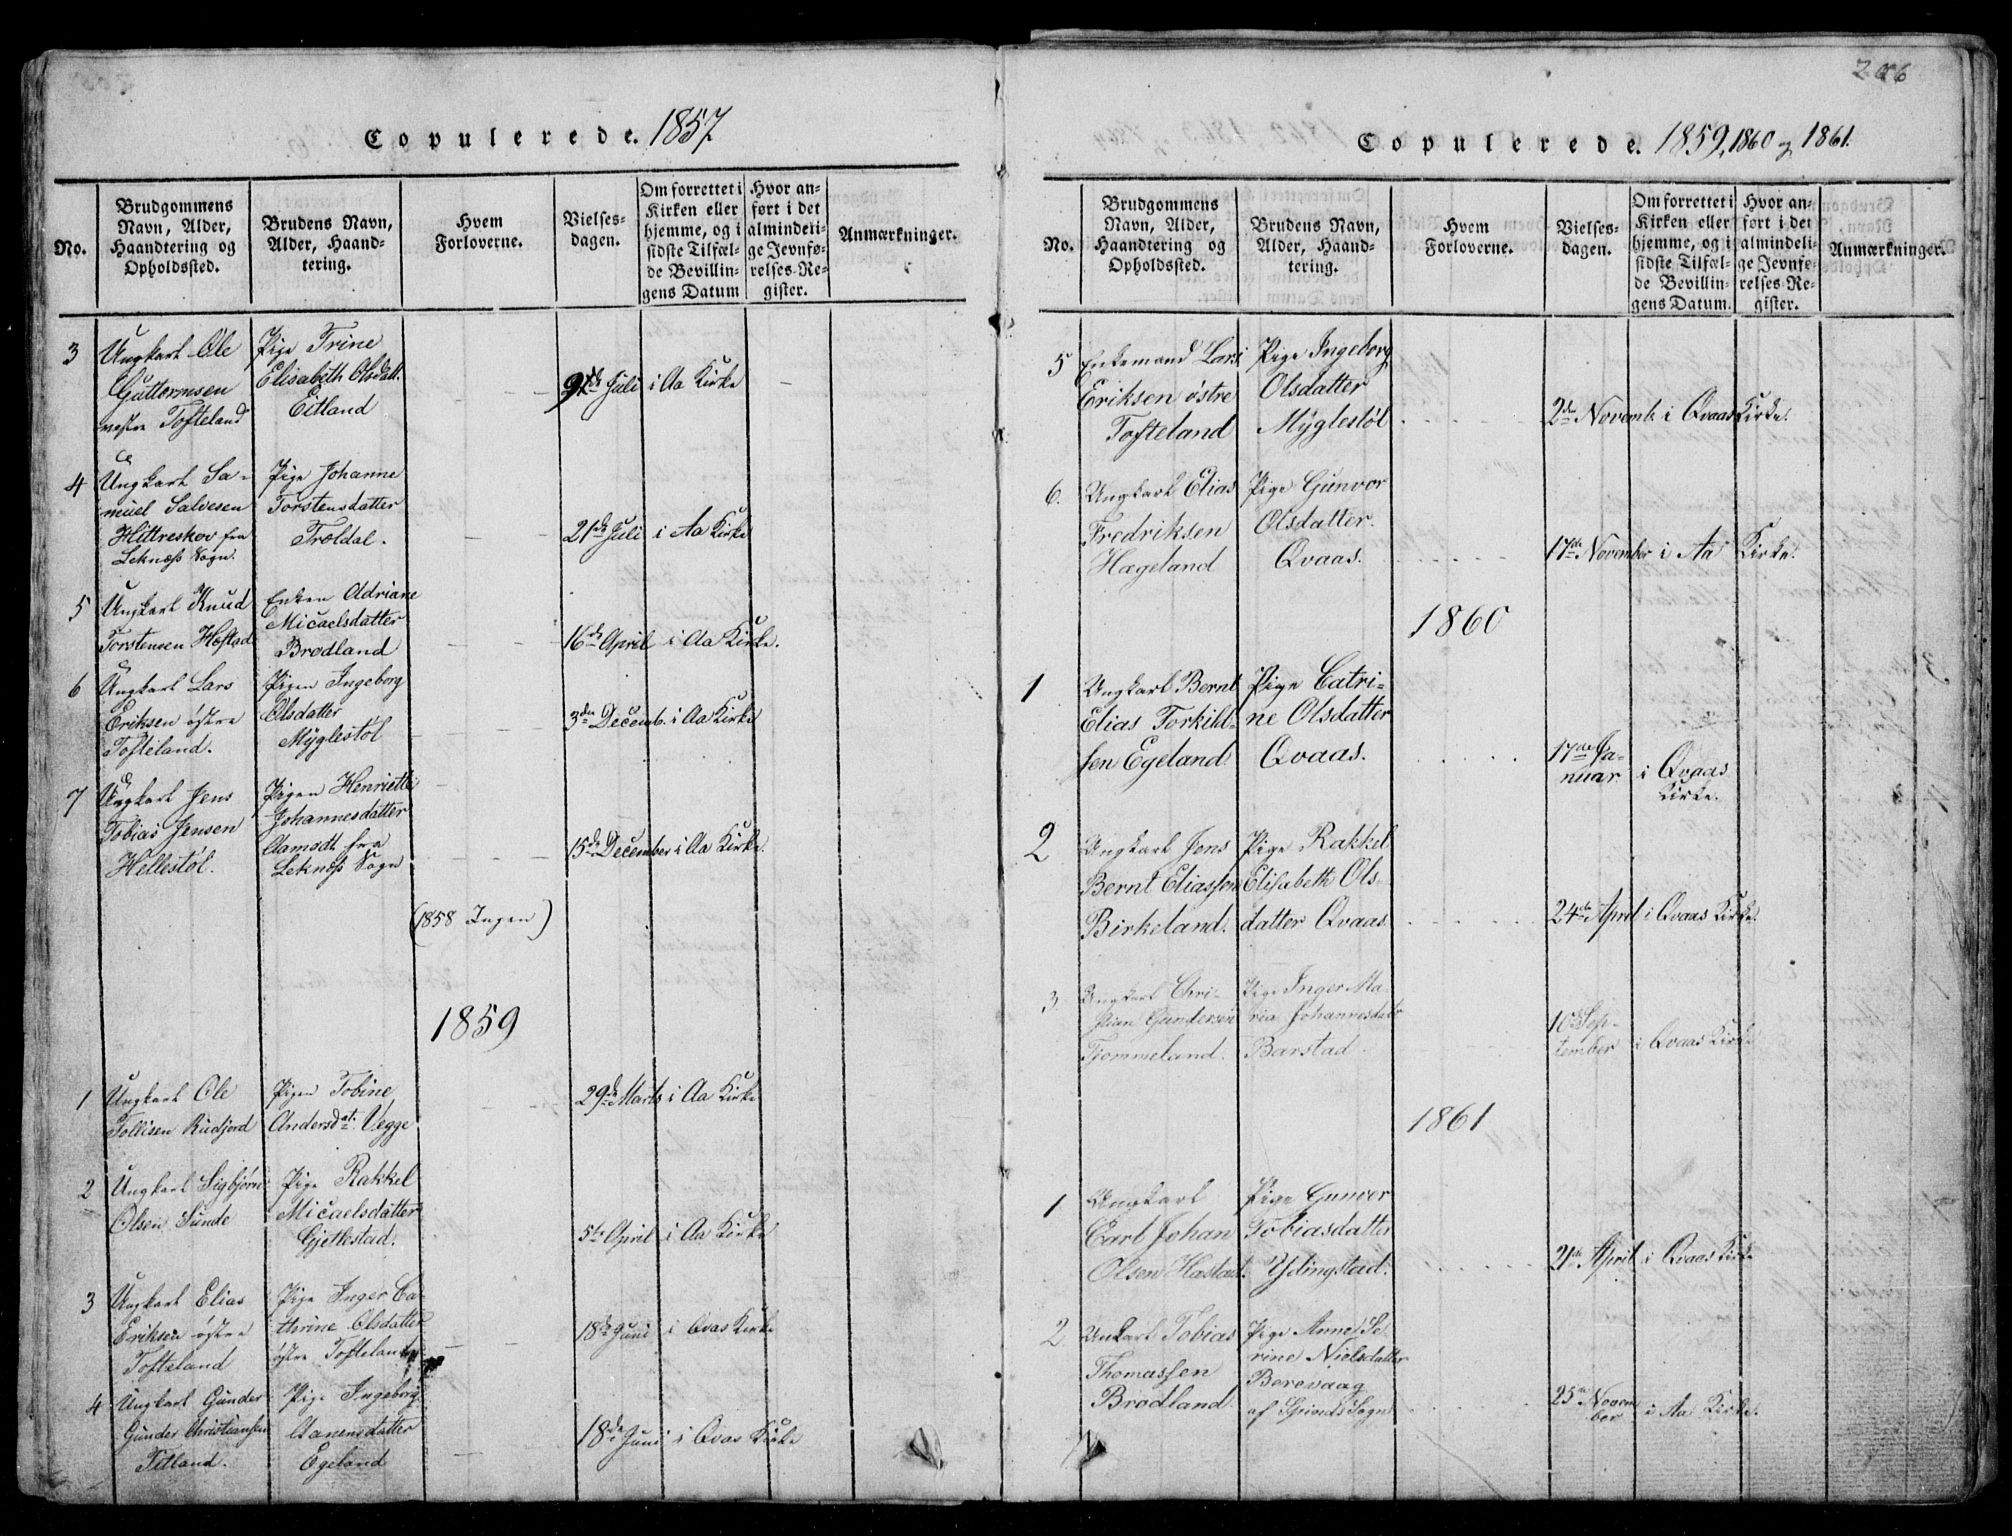 Copulerede. 1857
No.
Brudgommens Navn, Alder, Haandtering og Opholdssted.
Brudens Navn, Alder, Haandtering.
Hvem Forloverne.
Vielsesdagen.
Om forrettet i Kirken eller hjemme, og i sidste Tilfælde Bevillingens Datum
Hvor anført i det almindelige Jevnførelses-Register.
Anmærkninger.
3 Ungkarl Ole Pige Trine
Guttormsen Elisabeth Olsdatt. Juli i Aa Kirke
vestre Tofteland Eitland
4 Ungkarl Sa- Pige Johanne
muel Salvesen Torstensdatter
Hittreskov fra Troldal. 21de Juli i Aa Kirke
Leknæss Sogn.
5 Ungkarl Knud Enken Adriane
Torstensen Høstad Micaelsdatter
Brodland 16de April i Aa Kirke.
6 Ungkarl Lars Pigen Ingeborg
Eriksen østre Olsdatter
Tofteland. Mÿglestøl 3den Decemb. i Aa Kirke
7 Ungkarl Jens Pigen Henriette
Tobias Jensen Johannesdatter
Hellestøl. Aamodt fra
Leknæss Sogn 15de December i Aa Kirke.
(1858 Ingen)
1859
1 Ungkarl Ole Pigen Tobine
Tollisen Rudjord Andersdat. Vegge 29de Marts i Aa Kirke
2 Ungkarl Sigbjørn Pige Rakkel
Olsen Sunde Micaelsdatter
Gjetlestad. 5te April i Aa Kirke
3 Ungkarl Elias Pige Inger Ca-
Eriksen østre thrine Olsdatter
Tofteland østre Tofteland 18de Juni i Qvas Kirke
4 Ungkarl Gunder Pige Ingeborg
Gunder Christiansen Aanensdatter
Titland. Egeland 18de Juni i Qvas Kirke
206
Copulerede. 1859, 1860 og 1861.
No.
Brudgommens Navn, Alder, Haandtering og Opholdssted.
Brudens Navn, Alder, Haandtering.
Hvem Forloverne.
Vielsesdagen.
Om forrettet i Kirken eller hjemme, og i sidste Tilfælde Bevillingens Datum.
Hvor anført i det almindelige Jevnførelses-Register.
Anmærkninger.
5 Enkemand Lars Pige Ingeborg
Eriksen østre Olsdatter
Tofteland Mÿglestøl 2den Novemb. i Qvaas Kirke.
6. Ungkarl Elias Pige Gunvor
Fredriksen Olsdatter.
Hægeland Qvaas. 17de November i Aa Kirke.
1860
1 Ungkarl Bernt Pige Catri-
Elias Torkild- ne Olsdatter
sen Egeland. Qvaas. 17de Ja-
nuar i Qvaas
Kirke.
2 Ungkarl Jens Pige Rakkel
Bernt Eliassen Elisabeth Ols-
Birkeland. datter Qvaas. 24de April i Qvaas Kirke.
3 Ungkarl Chri- Pige Inger Ma-
stian Gundersen ria Johannesdatr
Tjommeland. Barstad. 10de Sep-
tember i Qvaas Kirke
1861
1 Ungkarl Pige Gunvor
Carl Johan Tobiasdatter
Olsen Høstad. Ydingstad. 21de April i Qvaas Kirke
2 Unkarl Tobias Pige Anne Se-
Thomassen rine Nielsdatter
Brodland. Berevaag
af Spinds Sogn 25de Novem
ber i Aa Kirke.